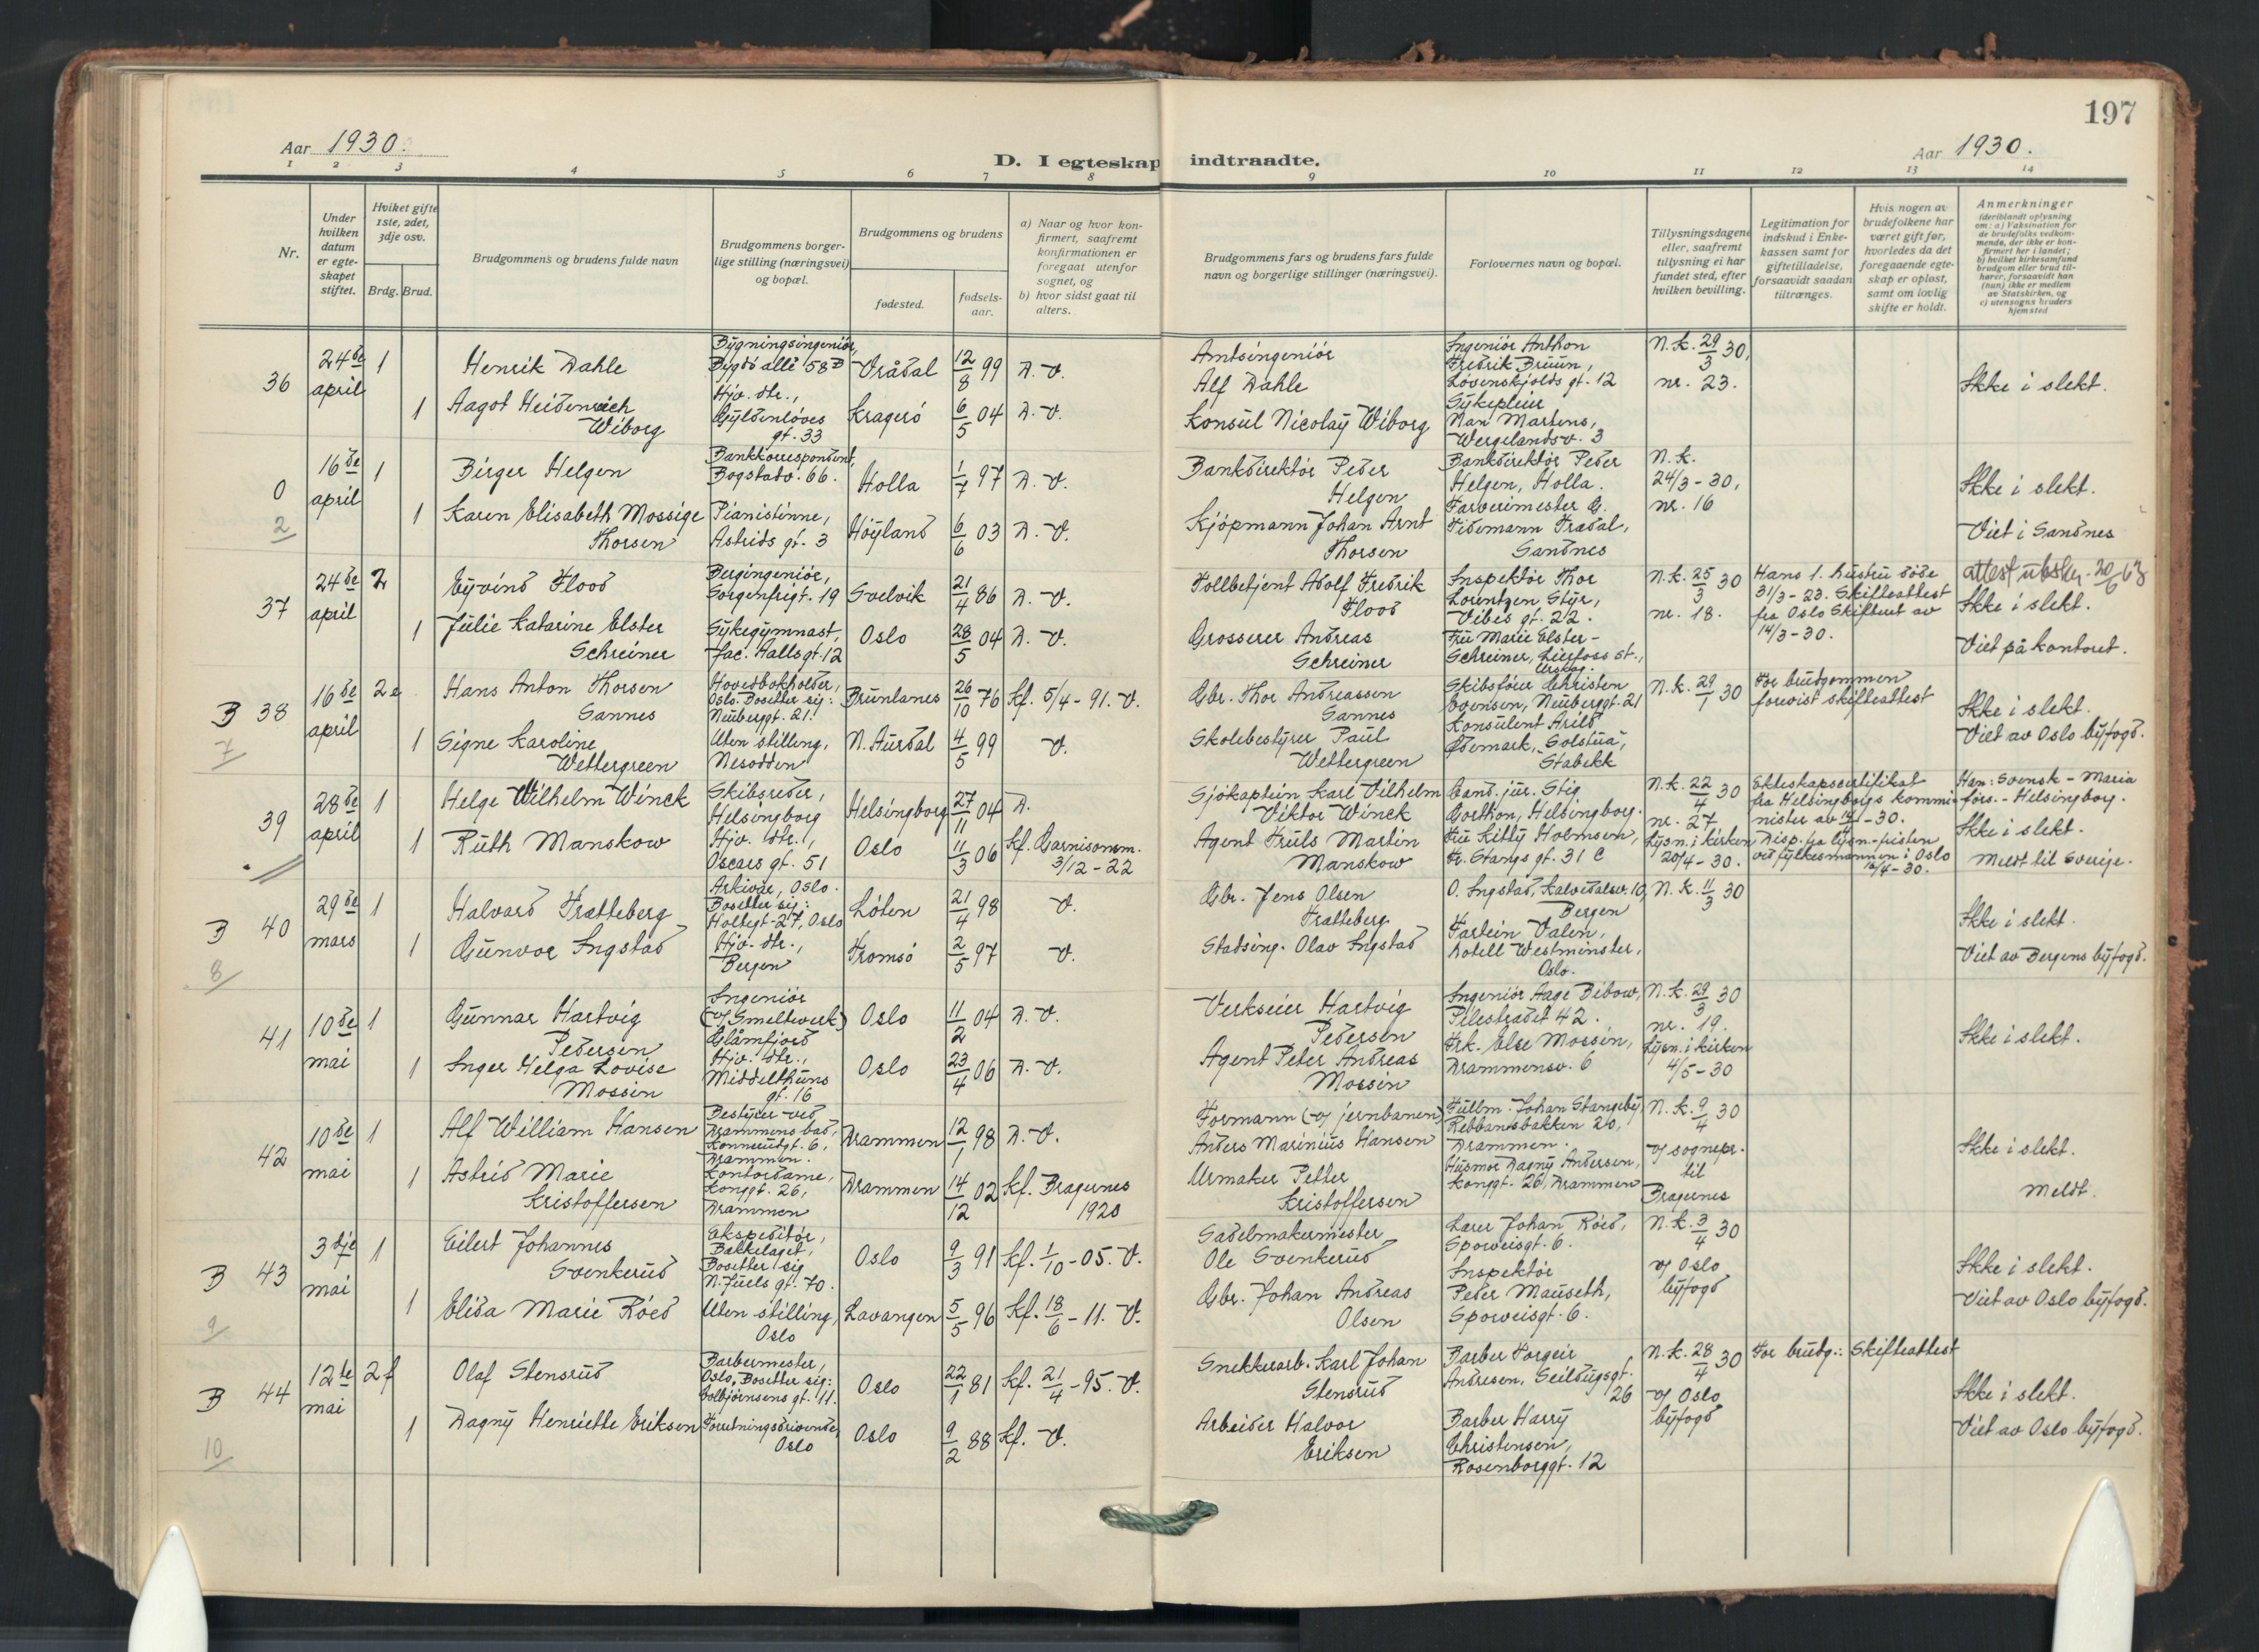 197
Aar 1930.
D. I egteskap indtraadte.
Aar 1930.
1 2 3 4 5 6 7 8 9 10 11 12 13 14
Nr.
Under hvilken datum er egteskapet stiftet.
Hvilket gifte 1ste, 2det, 3dje osv.
Brdg. Brud.
Brudgommens og brudens fulde navn
Brudgommens borgerlige stilling (næringsvei) og bopæl.
Brudgommens og brudens
fødested.
fødselsaar.
a) Naar og hvor konfirmert, saafremt konfirmationen er foregaat utenfor sognet, og
b) hvor sidst gaat til alters.
Brudgommens fars og brudens fars fulde navn og borgerlige stillinger (næringsvei).
Forlovernes navn og bopæl.
Tillysningsdagene eller, saafremt tillysning ei har fundet sted, efter hvilken bevilling.
Legitimation for indskud i Enkekassen samt for giftetilladelse, forsaavidt saadan tiltrænges.
Hvis nogen av brudefolkene har været gift før, hvorledes da det foregaaende egteskap er opløst, samt om lovlig skifte er holdt.
Anmerkninger
(deriblandt oplysning om: a) Vaksination for de brudefolks vedkommende, der ikke er konfirmert her i landet; b) hvilket kirkesamfund brudgom eller brud tilhører, forsaavidt han (hun) ikke er medlem av Statskirken, og c) utensogns bruders hjemsted
36
24de april
1
Henrik Dahle
Bygningsingeniør, Bygdø allé 58B
Vrådal
12/8 99
D. V.
Amtsingeniør Alf Dahle
Ingeniør Anthon Fredrik Bruun, Løvenskjolds gt. 12
N.k. 29/3 30, nr. 23.
Ikke i slekt.
1
Aagot Heidenreich Wiborg
Hjv. dtr., Gyldenløves gt. 33
Kragerø
6/5 04
D. V.
Konsul Nicolay Wiborg
Sykepleier Nan Martens, Wergelandsv. 3
0
2
16de april
1
Birger Helgen
Bankkorrespondent, Bogstadv. 66.
Holla
1/7 97
D. V.
Bankdirektør Peder Helgen
Bankdirektør Peder Helgen, Holla.
N.k. 24/3-30, nr. 16
Ikke i slekt.
1
Karen Elisabeth Mossige Thorsen
Pianistinne, Astrids gt. 3
Høyland
6/6 03
D. V.
Kjøpmann Johan Arnt Thorsen
Farverimester G. Tidemann Fradal, Sandnes
Viet i Sandnes
37
24de april
2
Eyvind Flood
Bergingeniør, Sorgenfrigt. 19
Svelvik
21/4 86
D. V.
Tollbetjent Adolf Fredrik Flood
Inspektør Thor Lorentzen Styr, Vibes gt. 22.
N.k. 25/3 30 nr. 18.
Hans 1. hustru døde 31/3-23. Skifteattest fra Oslo Skifterett av 14/3-30.
attest utskr. 20/6 63
Ikke i slekt.
1
Julie Katarine Elster Schreiner
Sykegymnast, Jac. Aallsgt. 12
Oslo
28/5 04
D. V.
Grosserer Andreas Schreiner
Fru Marie Elster-Schreiner, Lierfoss st., Urskog.
Viet på kontoret.
B 38
7
16de april
2e
Hans Anton Thorsen Sannes
Hovedbokholder, Oslo. Bosetter sig: Neuberggt. 21.
Brunlanes
26/10 76
Kf. 5/4-91. V.
Gbr. Thor Andreassen Sannes
Skibsfører Christen Evensen, Neuberggt. 21
N.k. 29/1 30
For brudgommen forevist skifteattest
Ikke i slekt.
1
Signe Karoline Wettergreen
Uten stilling, Nesodden
N. Aurdal
4/5 99
V.
Skolebestyrer Paul Wettergreen
Konsulent Arild Ødemark, "Solstua", Stabekk
Viet av Oslo byfogd.
39
28de april
1
Helge Wilhelm Winck
Skibsreder, Helsingborg
Helsingborg
27/11 04
D.
Sjøkaptein Karl Vilhelm Viktor Winck
Cand. jur. Stig Gorthon, Helsingborg.
N.k. 22/4 30 nr. 27
Ekteskapscertifikat fra Helsingborgs kommi-nister av 14/4-30.
Han: Svensk - Maria förs. - Helsingborg.
1
Ruth Manskow
Hjv. dtr., Oscars gt. 51
Oslo
11/3 06
Kf. Garnisonsm. 3/12-22
Agent Truls Martin Manskow
Fru Kitty Holmsen, Fr. Stangs gt. 31 C
Lysn. i kirken 20/4-30.
Disp. fra lysn.-fristen ved fylkesmannen i Oslo 16/4-30.
Ikke i slekt.
Meldt til Sverige.
B 40
8
29de mars
1
Halvard Trætteberg
Arkivar, Oslo. Bosetter sig: Holtegt. 27, Oslo
Løten
21/4 98
V.
Gbr. Jens Olsen Trætteberg
O. Ingstad, Kalvedalsv. 10, Bergen
N.k. 11/3 30
Ikke i slekt.
1
Gunvor Ingstad
Hjv. dtr., Bergen
Tromsø
2/5 97
V.
Stadsing. Olav Ingstad
Fartein Valen, Hotell Westminster, Oslo.
Viet av Bergens byfogd.
41
10de mai
1
Gunnar Hartvig Pedersen
Ingeniør (v/ Smeltverk) Glåmfjord
Oslo
11/2 04
D. V.
Verkseier Hartvig Pedersen
Ingeniør Aage Bibow, Pilestredet 42.
N.k. 29/3 30 nr. 19.
Ikke i slekt.
1
Inger Helga Lovise Mossin
Hjv. dtr., Middelthuns gt. 16
Oslo
23/4 06
D. V.
Agent Peter Andreas Mossin
Frk. Else Mossin, Drammensv. 6
Lysn. i kirken 4/5-30
42
10de mai
1
Alf William Hansen
Bestyrer ved Drammens bad, Konnerudgt. 6, Drammen.
Drammen
12/1 98
D. V.
Formann (v/ jernbanen) Anders Marinius Hansen
Fullm. Johan Stangeby, Rebbansbakken 20, Drammen.
N.k. 9/4 30 v/ sognepr. til Bragernes
Ikke i slekt.
1
Astrid Marie Kristoffersen
Kontordame, Konggt. 26, Drammen
Drammen
14/12 02
Kf. Bragernes 1920
Urmaker Petter Kristoffersen
Husmor Dagny Andersen, Konggt. 26, Drammen
Meldt.
B 43
9
3dje mai
1
Eilert Johannes Svenkerud
Ekspeditør, Bækkelaget, Bosetter sig N. Juels gt. 70.
Oslo
9/3 91
Kf. 1/10-05. V.
Sadelmakermester Ole Svenkerud
Lærer Johan Røed, Sporveisgt. 6.
N.k. 3/4 30 v/ Oslo byfogd
Ikke i slekt.
1
Elida Marie Røed
Uten stilling, Oslo
Lavangen
5/5 96
Kf. 18/6-11. V.
Gbr. Johan Andreas Olsen
Inspektør Peder Mauseth, Sporveisgt. 6.
Viet av Oslo byfogd.
B 44
10
12te mai
2f
Olaf Stensrud
Barbermester, Oslo, Bosetter sig: Colbjørnsens gt. 11.
Oslo
22/1 81
Kf. 21/4-95. V.
Snekkerarb. Karl Johan Stensrud
Barber Torgeir Andresen, Seilduksgt. 26
N.k. 28/4 30 v/ Oslo byfogd
For brudg.: Skifteattest
Ikke i slekt.
1
Dagny Henriette Eriksen
Forretningsdrivende, Oslo
Oslo
9/2 88
Kf. V.
Arbeider Halvor Eriksen
Barber Harry Christensen, Rosenborggt. 12
Viet av Oslo byfogd.